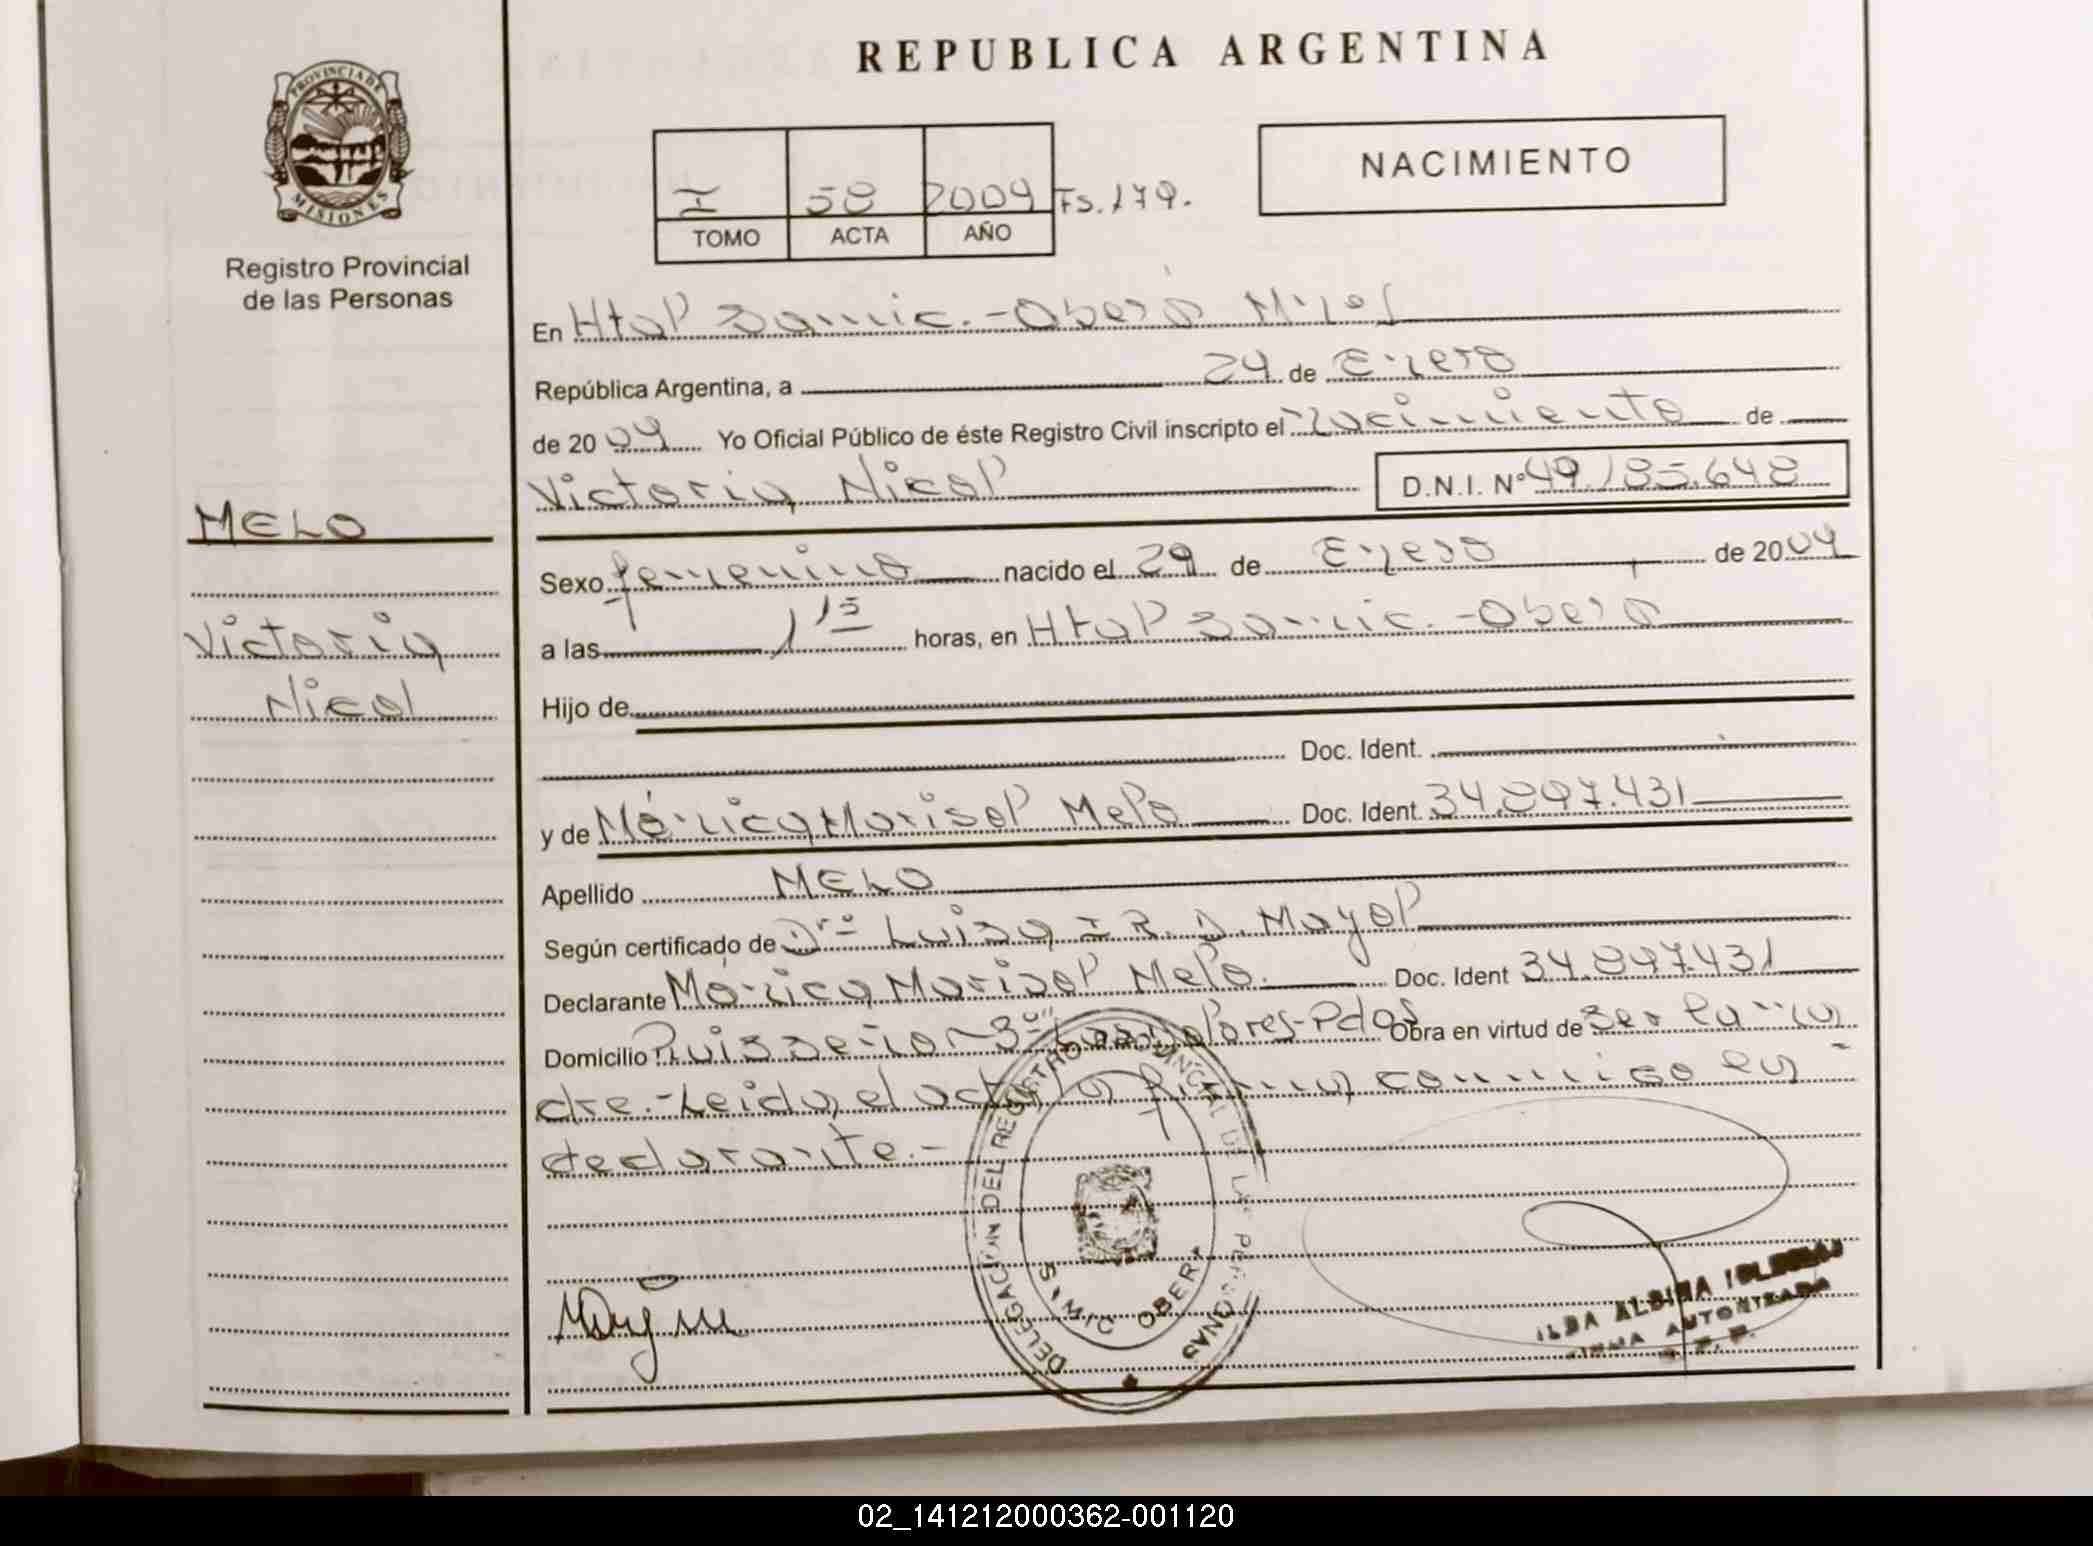 REPUBLICA ARGENTINA
PROVINCIA DE MISIONES
Registro Provincial
de las Personas
I 58 2009 Fs. 179.
TOMO ACTA AÑO
NACIMIENTO
En Htal Samic.-Oberá Mnes
República Argentina, a 29 de Enero
de 2009 Yo Oficial Público de éste Registro Civil inscripto el Nacimiento de
Victoria Nicol D.N.I. Nº 49.185.648
MELO
Victoria
Nicol
Sexo femenino nacido el 29 de Enero de 2009
a las horas, en Htal Samic.-Oberá
Hijo de
Doc. Ident.
y de Mónica Marisol Melo Doc. Ident. 34.897.431
Apellido MELO
Según certificado de Dra Luisa I R. D. Mayol
Declarante Mónica Marisol Melo. Doc. Ident 34.897.431
Domicilio Ruisseñor Obra en virtud de ser la ma
dre.-Leida el acta la firma conmigo la
declarante.-
DELEGACION DEL REGISTRO PROVINCIAL DE LAS PERSONAS
OBERA
ILDA ALBINA
FIRMA AUTORIZADA
02_141212000362-001120